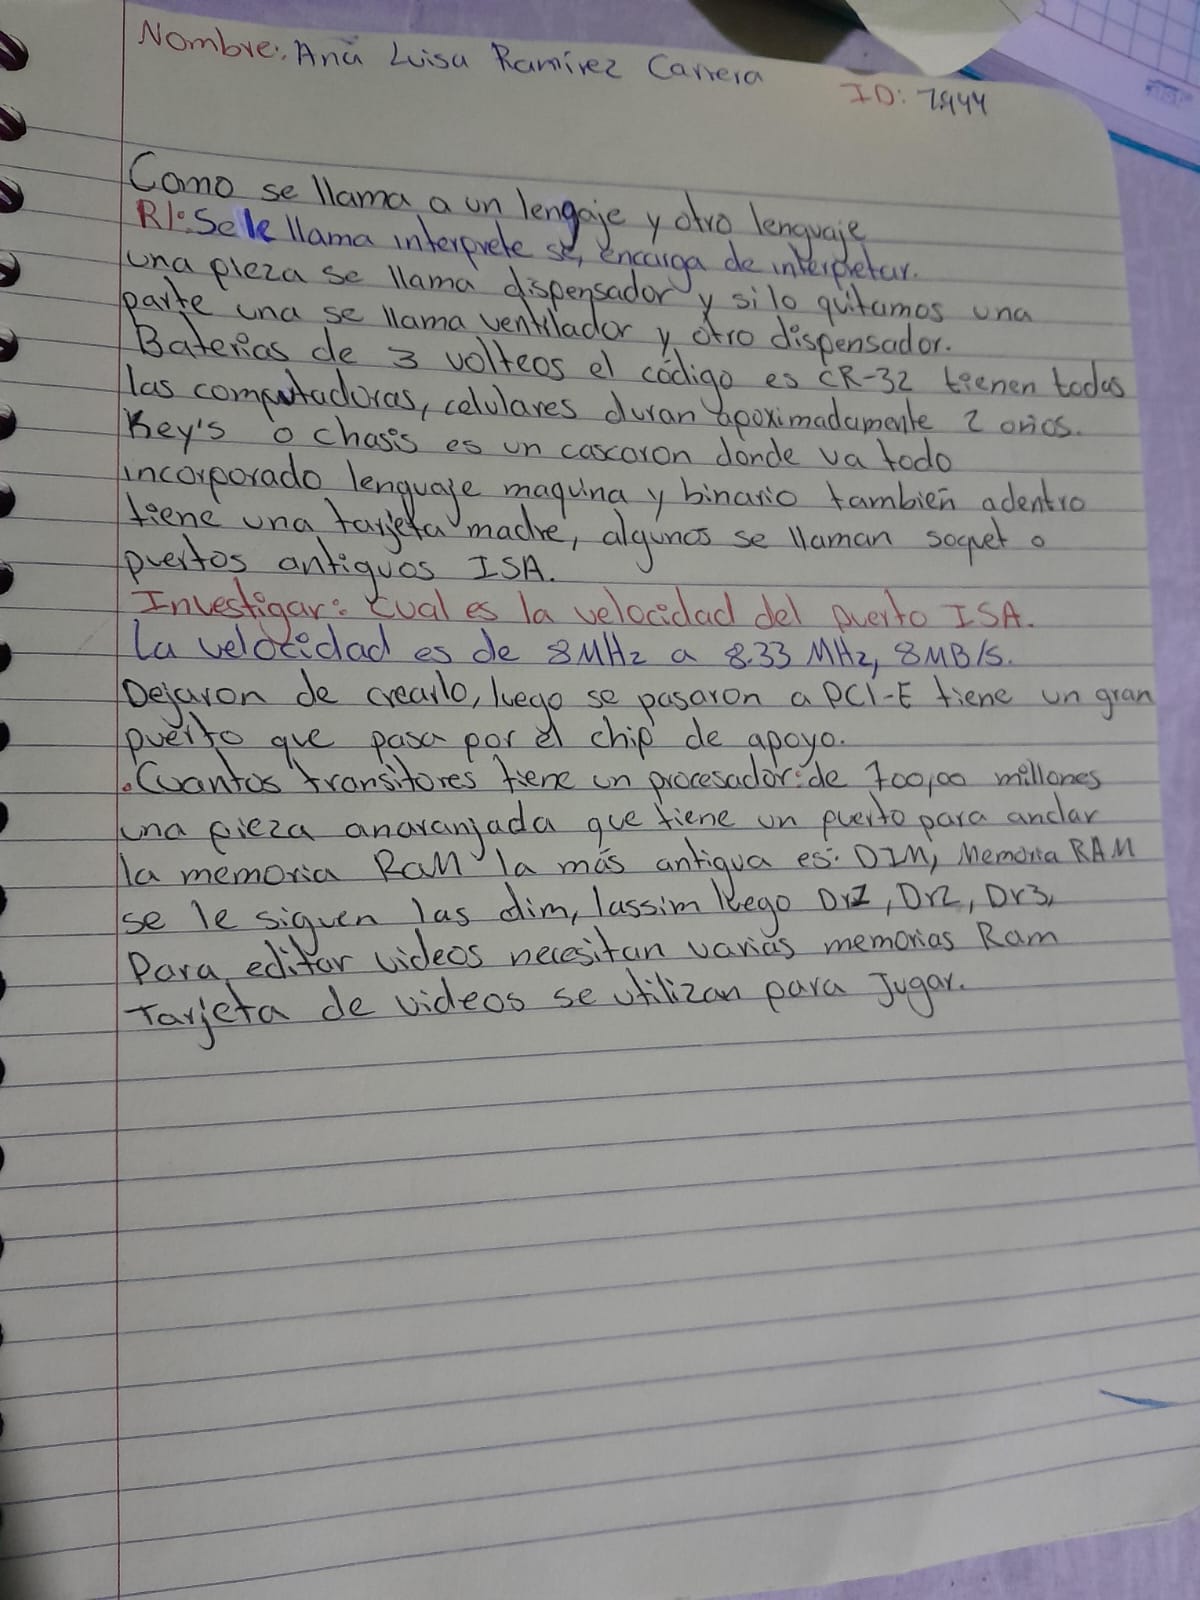 Nombre: Ana Luisa Ramírez Carrera
ID: 7944
Como se llama a un lengaje y otro lenguaje
R/: Se le llama interprete se, encarga de interpretar.
una pieza se llama dispensador y si lo quitamos una
parte una se llama ventilador y otro dispensador.
Baterias de 3 volteos el código es CR-32 tienen todas
las computadoras, celulares duran apoximadamente 2 años.
Key's o chasis es un cascaron donde va todo
incorporado lenguaje maquina y binario tambien adentro
tiene una tarjeta madre, algunos se llaman soquet o
puertos antiguos ISA.
Investigar: Cual es la velocidad del puerto ISA.
La velocidad es de 8MHz a 8.33 MHz, 8MB/s.
Dejaron de crearlo, luego se pasaron a PCI-E tiene un gran
puerto que pasa por el chip de apoyo.
. Cuantos transitores tiene un procesador: de 700,00 millones
una pieza anaranjada que tiene un puerto para andar
la memoria RaM la más antigua es: DIM, Memoria RAM
se le siguen las dim, lassim luego Dr1, Dr2, Dr3,
Para editar videos necesitan varias memorias Ram
Tarjeta de videos se utilizan para Jugar.